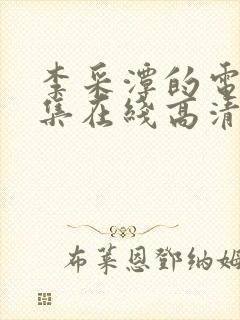 李采潭的電
集在綫高清
布萊恩鄧納姆